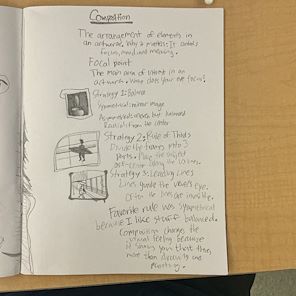 Composition
The arrangement of elements in
an artwork. Why it matters: It
focus, mood, and meaning.
Focal point
The main area of interest in an
artwork. Where does your eye focus?
Strategy 1: Balance
Symmetrical: mirror image
Asymmetrical: uneven but balanced
Radial: from the center
Strategy 2: Rule of Thirds
Divide the frames into 3
parts. Place the subject
off-center along the lines.
Strategy 3: Leading Lines
Lines guide the viewer's eye.
Often the lines are invisible.
Favorite rule was symmetrical
because I like stuff balanced.
Composition changes the
visual feeling because
it shows you that there's
more than drawing and
painting.